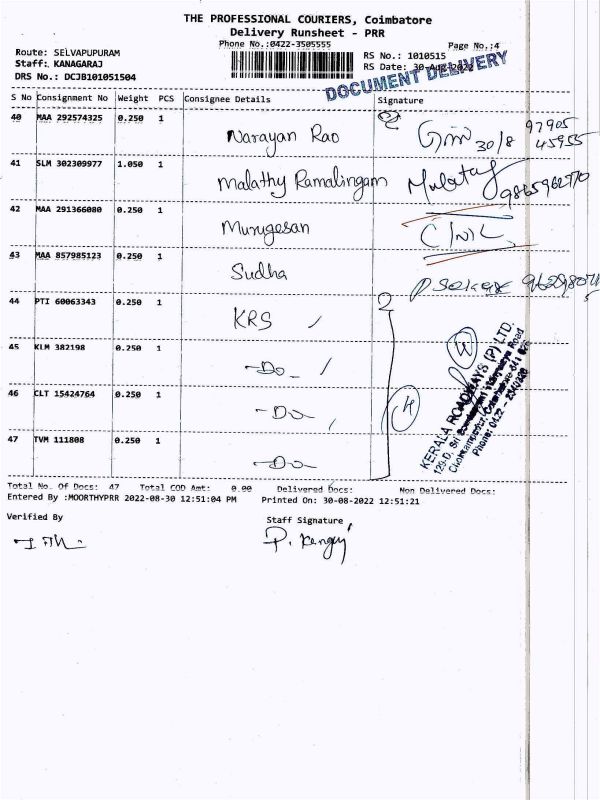 THE PROFESSIONAL COURIERS, Coimbatore
Delivery Runsheet - PRR
Phone No.:0422-3505555
Page No.:4
Route: SELVAPUPURAM
RS No.: 1010515
Staff: KANAGARAJ
RS Date: 30-Aug-2022
DRS No.: DCJB101051504
DOCUMENT DELIVERY
S No Consignment No Weight PCS Consignee Details Signature
40 MAA 292574325 0.250 1
Narayan Rao 30/8 97905 45955
41 SLM 302309977 1.050 1
Malathy Ramalingam
42 MAA 291366080 0.250 1
Murugesan
43 MAA 857985123 0.250 1
Sudha
44 PTI 60063343 0.250 1
KRS
45 KLM 382198 0.250 1
-Do-
46 CLT 15424764 0.250 1
-Do-
47 TVM 111808 0.250 1
-Do-
4
KERALA ROADWAYS (P) LTD.
Total No. Of Docs: 47 Total COD Amt: 0.00 Delivered Docs: Non Delivered Docs:
Entered By :MOORTHYPRR 2022-08-30 12:51:04 PM Printed On: 30-08-2022 12:51:21
Verified By
Staff Signature